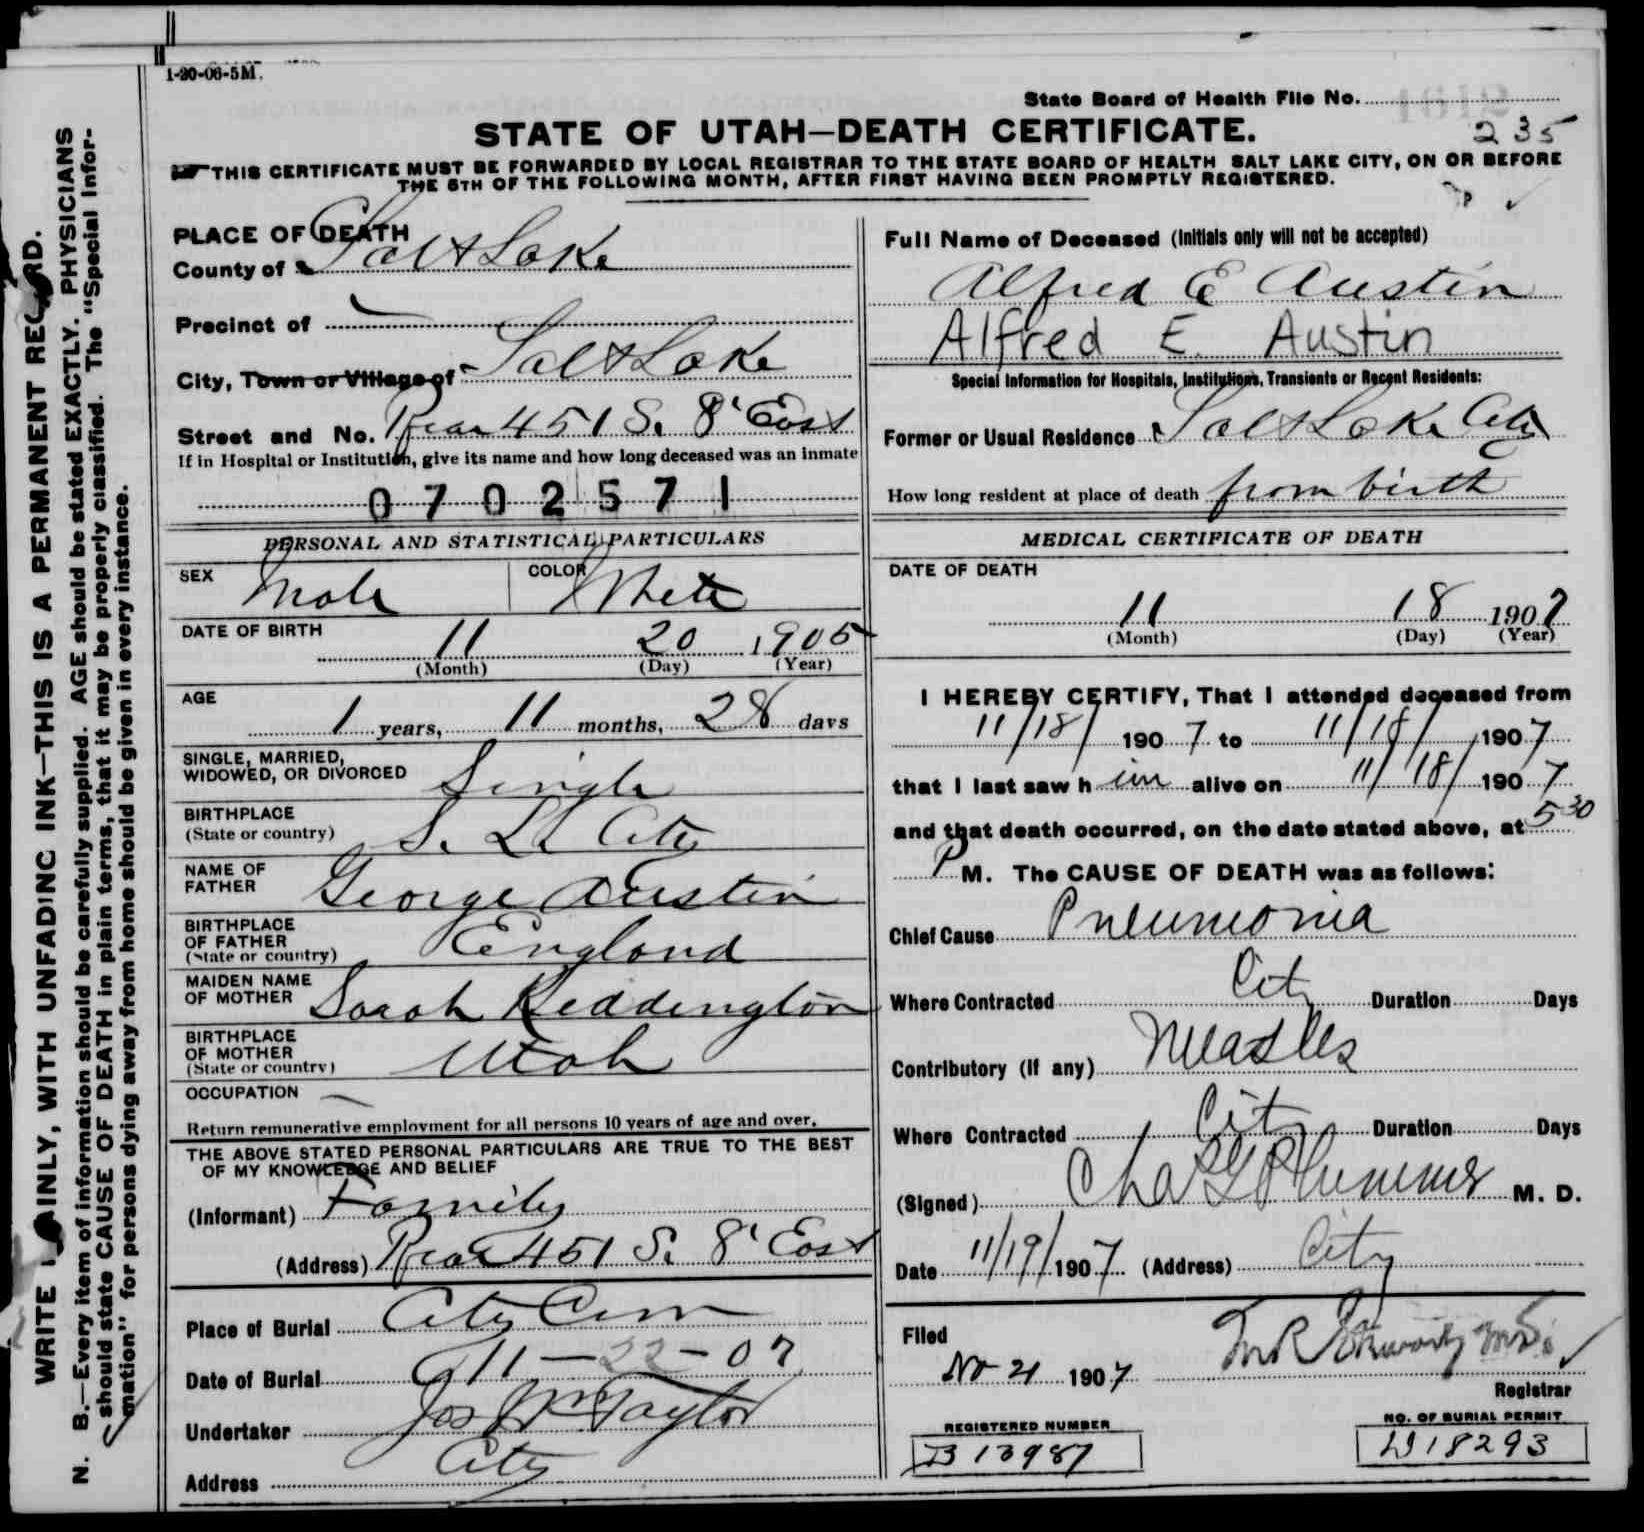 1-20-06-5M.
State Board of Health File No.
235
STATE OF UTAH—DEATH CERTIFICATE.
THIS CERTIFICATE MUST BE FORWARDED BY LOCAL REGISTRAR TO THE STATE BOARD OF HEALTH SALT LAKE CITY, ON OR BEFORE
THE 5TH OF THE FOLLOWING MONTH, AFTER FIRST HAVING BEEN PROMPTLY REGISTERED.
WRITE PLAINLY, WITH UNFADING INK—THIS IS A PERMANENT RECORD.
N. B.—Every item of information should be carefully supplied. AGE should be stated EXACTLY. PHYSICIANS
should state CAUSE OF DEATH in plain terms, that it may be properly classified. The "Special Infor-
mation" for persons dying away from home should be given in every instance.
PLACE OF DEATH
County of Salt Lake
Precinct of
City, Town or Village of Salt Lake
Street and No. Rear 451 S. 8' East
If in Hospital or Institution, give its name and how long deceased was an inmate
0702571
PERSONAL AND STATISTICAL PARTICULARS
SEX Male COLOR White
DATE OF BIRTH 11 20 1905
(Month) (Day) (Year)
AGE
1 years, 11 months, 28 days
SINGLE, MARRIED,
WIDOWED, OR DIVORCED Single
BIRTHPLACE
(State or country) S. L. City
NAME OF
FATHER George Austin
BIRTHPLACE
OF FATHER
(State or country) England
MAIDEN NAME
OF MOTHER Sarah Reddington
BIRTHPLACE
OF MOTHER
(State or country) Utah
OCCUPATION —
Return remunerative employment for all persons 10 years of age and over.
THE ABOVE STATED PERSONAL PARTICULARS ARE TRUE TO THE BEST
OF MY KNOWLEDGE AND BELIEF
(Informant) Family
(Address) Rear 451 S. 8' East
Place of Burial City Cem
Date of Burial 11-22-07
Undertaker Jos Wm Taylor
Address City
Full Name of Deceased (Initials only will not be accepted)
Alfred E Austin
Alfred E. Austin
Special Information for Hospitals, Institutions, Transients or Recent Residents:
Former or Usual Residence Salt Lake City
How long resident at place of death from birth
MEDICAL CERTIFICATE OF DEATH
DATE OF DEATH
11 18 1907
(Month) (Day) (Year)
I HEREBY CERTIFY, That I attended deceased from
11/18/ 1907 to 11/18/ 1907
that I last saw him alive on 11/18/ 1907
and that death occurred, on the date stated above, at 5 30
P M. The CAUSE OF DEATH was as follows:
Chief Cause Pneumonia
Where Contracted City Duration Days
Contributory (If any) Measles
Where Contracted City Duration Days
(Signed) Chas G Plummer M. D.
Date 11/19/1907 (Address) City
Filed
Nov 21 1907
Registrar
REGISTERED NUMBER
B 13987
NO. OF BURIAL PERMIT
D 18293